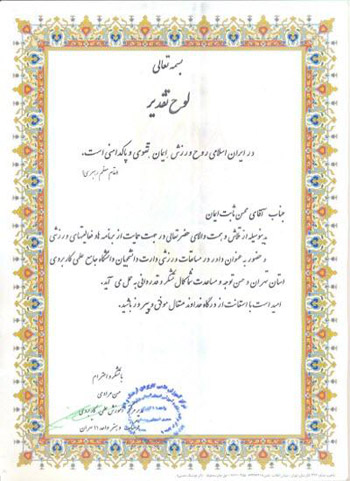 بسمه تعالی
لوح تقدیر
در ایران اسلامی روح ورزش ایمان، تقوی و پاکدامنی است.
(مقام معظم رهبری)
جناب آقای محسن ثابت ایمان
بدینوسیله از تلاش و همت والای حضرتعالی در جهت حمایت از برنامه ها و فعالیتهای ورزشی
و حضور به عنوان داور در مسابقات ورزشی دارت دانشجویان دانشگاه جامع علمی کاربردی
استان تهران و حسن توجه و مساعدت شما کمال تشکر و قدردانی به عمل می آید.
امید است با استعانت از درگاه خداوند متعال موفق و پیروز باشید.
با تشکر و احترام
حسن مرادی
آموزش علمی کاربردی
و هنر واحد ۱۱ تهران